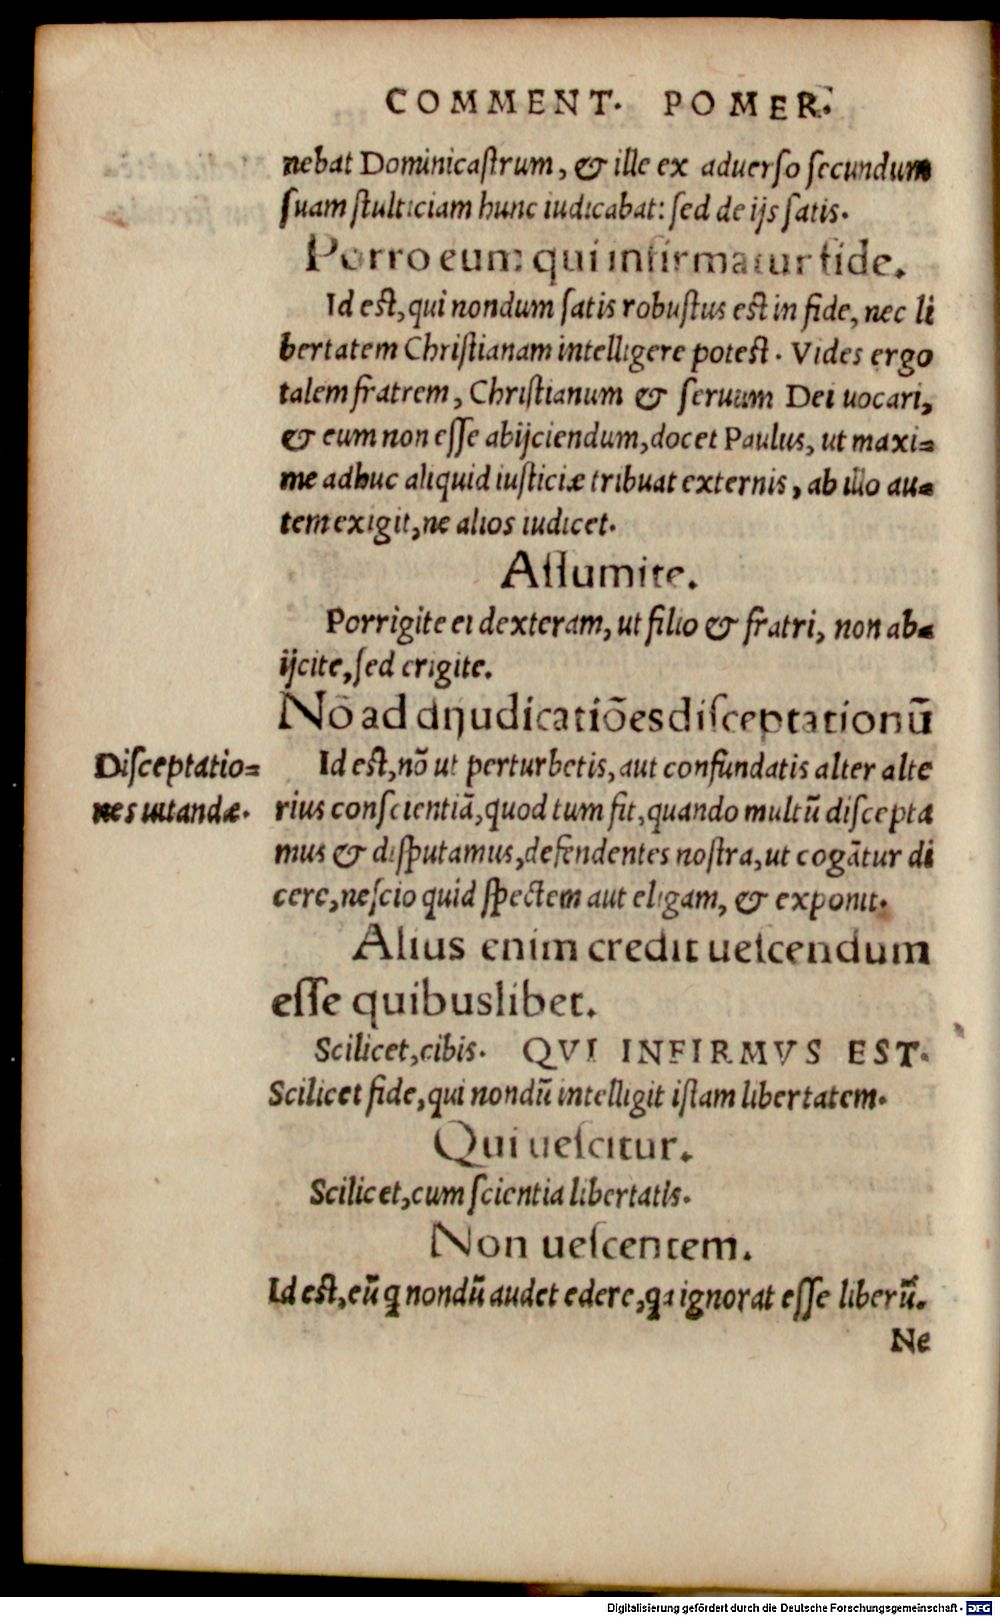 COMMENT. POMER.
nebat Dominicaſtrum, & ille ex aduerſo ſecundum
ſuam ſtulticiam hunc iudicabat: ſed de ijs ſatis.
Porro eum qui infirmatur fide.
Id eſt, qui nondum ſatis robuſtus eſt in fide, nec li
bertatem Chriſtianam intelligere poteſt. Vides ergo
talem fratrem, Chriſtianum & ſeruum Dei uocari,
& eum non eſſe abijciendum, docet Paulus, ut maxi=
me adhuc aliquid iuſticiæ tribuat externis, ab illo au=
tem exigit, ne alios iudicet.
Aſſumite.
Porrigite ei dexteram, ut filio & fratri, non ab=
ijcite, ſed erigite.
Nō ad dijudicatiōes diſceptationū
Diſceptatio=
nes uitandæ.
Id eſt, nō ut perturbetis, aut confundatis alter alte
rius conſcientiā, quod tum fit, quando multū diſcepta
mus & diſputamus, defendentes noſtra, ut cogātur di
cere, neſcio quid ſpectem aut eligam, & exponit.
Alius enim credit ueſcendum
eſſe quibuslibet.
Scilicet, cibis. QVI INFIRMVS EST.
Scilicet fide, qui nondū intelligit iſtam libertatem.
Qui ueſcitur.
Scilicet, cum ſcientia libertatis.
Non ueſcentem.
Id eſt, eū q nondū audet edere, qa ignorat eſſe liberū.
Ne
Digitalisierung gefördert durch die Deutsche Forschungsgemeinschaft - DFG